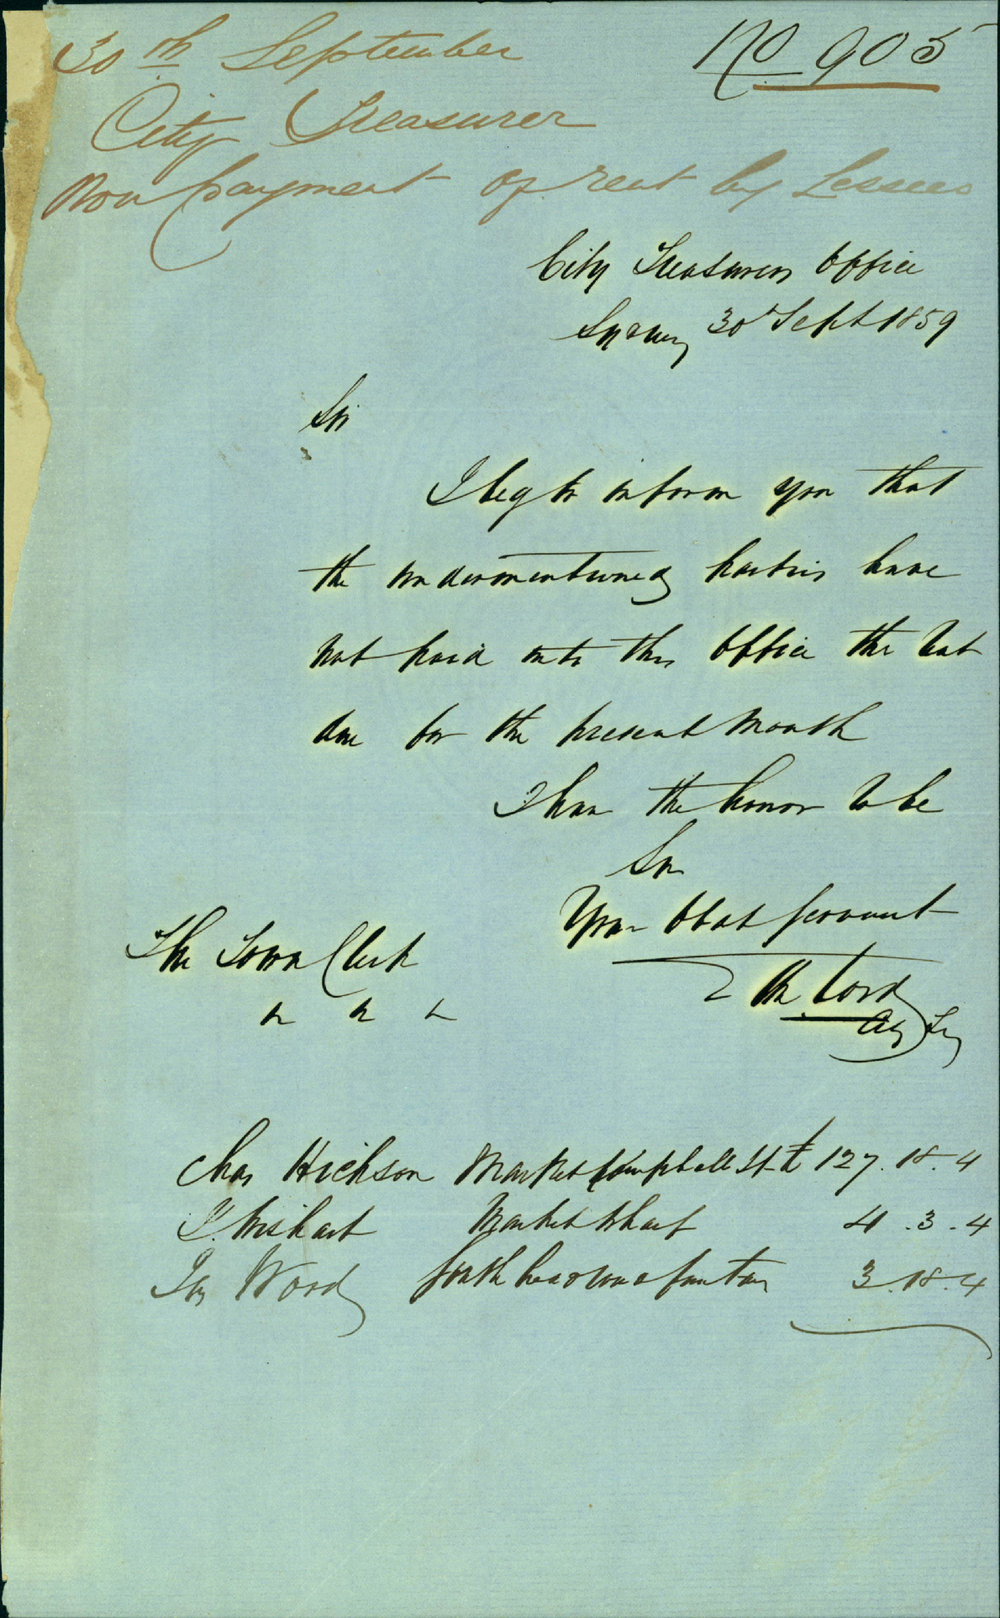 30th September
No 905
City Treasurer
Non payment of rent by Lessees
City Treasurers Office
Sydney 30 Sept 1859
Sir
I beg to inform you that
the undermentioned parties have
not paid into this Office the Rent
due for the present Month
I have the honor to be
Sir
Your Obdt Servant
The Town Clerk
Wm Lord
Chas Hickson Market Campbell St £ 127.18.4
T. Wishart Market Wharf 4.3.4
Jas Wood South head road fountain 3.18.4